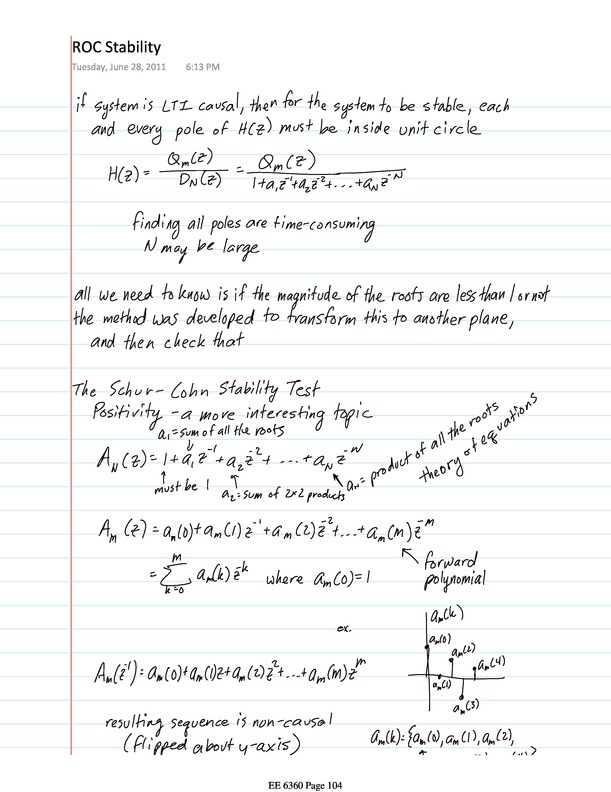 ROC Stability
Tuesday, June 28, 2011 6:13 PM
if system is LTI causal, then for the system to be stable, each
and every pole of H(z) must be inside unit circle
H(z) = Qm(z) / DN(z) = Qm(z) / 1+a₁z⁻¹+a₂z⁻²+...+aNz⁻ᴺ
finding all poles are time-consuming
N may be large
all we need to know is if the magnitude of the roots are less than 1 or not
the method was developed to transform this to another plane,
and then check that
The Schur-Cohn Stability Test
Positivity - a more interesting topic
a₁=sum of all the roots
AN(z)=1+a₁z⁻¹+a₂z⁻²+...+aNz⁻ᴺ
must be 1
a₂=sum of 2x2 products
aN=product of all the roots
theory of equations
Am(z)=am(0)+am(1)z⁻¹+am(2)z⁻²+...+am(m)z⁻ᵐ
= Σ am(k)z⁻ᵏ where am(0)=1
m
k=0
forward
polynomial
ex.
am(k)
am(0)
am(2)
am(4)
am(1)
am(3)
Am(z⁻¹)=am(0)+am(1)z+am(2)z²+...+am(m)zᵐ
resulting sequence is non-causal
(flipped about y-axis)
am(k)={am(0), am(1), am(2),
EE 6360 Page 104